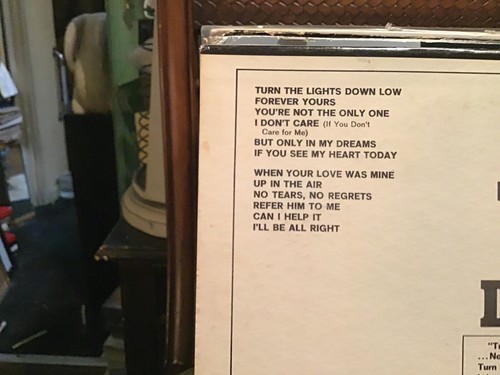 TURN THE LIGHTS DOWN LOW
FOREVER YOURS
YOU'RE NOT THE ONLY ONE
I DON'T CARE (If You Don't
Care for Me)
BUT ONLY IN MY DREAMS
IF YOU SEE MY HEART TODAY
WHEN YOUR LOVE WAS MINE
UP IN THE AIR
NO TEARS, NO REGRETS
REFER HIM TO ME
CAN I HELP IT
I'LL BE ALL RIGHT
Turn